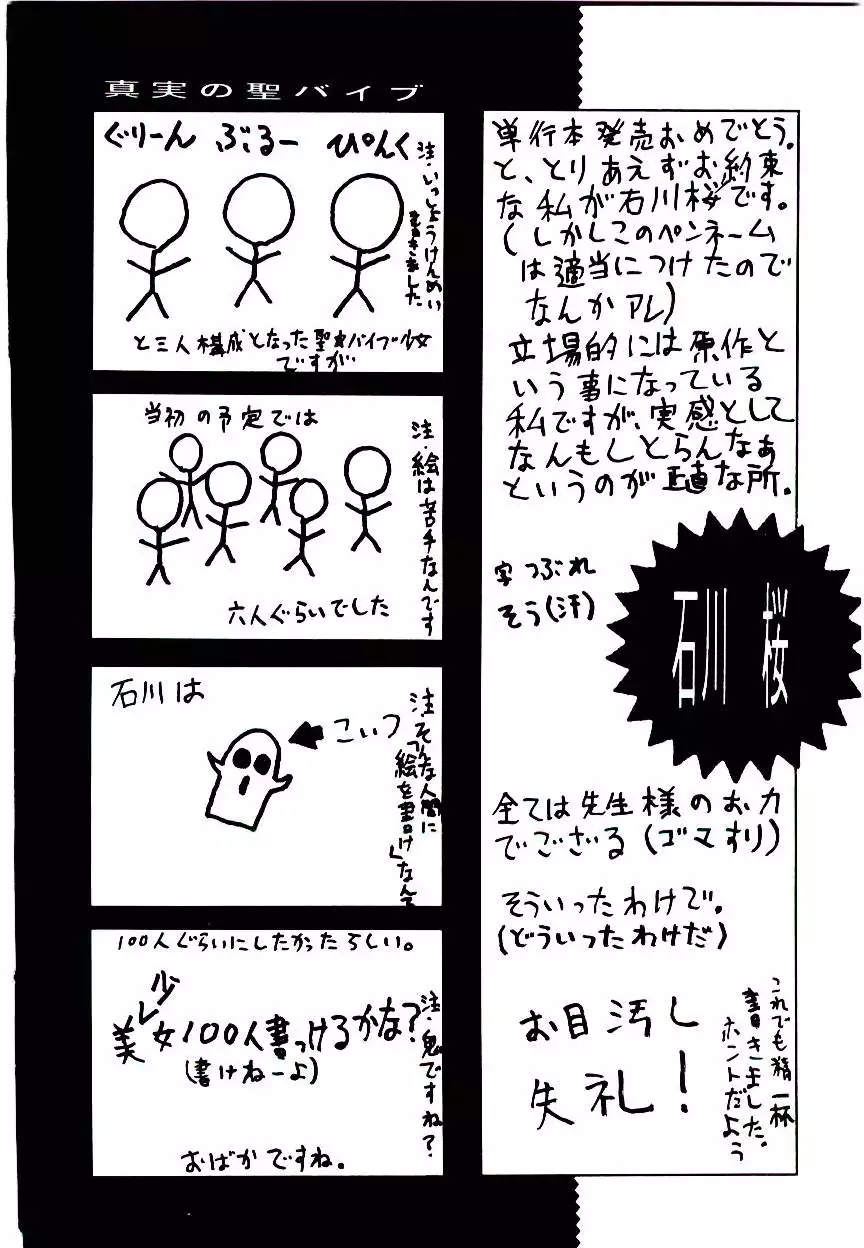 真実の聖バイブ
ぐりーん ぶるー ぴんく
注・いっしょうけんめい
書きました
と三人構成となった聖バイブ少女
ですが
当初の予定では
注・絵は苦手なんです
六人ぐらいでした
石川は
こいつ
注・そんな人間に
絵を書けなんて
100人ぐらいにしたかったらしい。
美少女100人書っけるかな?
(書けねーよ)
注・鬼ですね?
おばかですね。
単行本発売おめでとう。
と、とりあえずお約束
な私が石川桜です。
(しかしこのペンネーム
は適当につけたので
なんかアレ)
立場的には原作と
いう事になっている
私ですが、実感として
なんもしとらんなぁ
というのが正直な所。
字つぶれ
そう(汗)
石川 桜
全ては先生様のお力
でござる(ゴマすり)
そういったわけで。
(どういったわけだ)
お目汚し
失礼!
これでも精一杯
書きました。
ホントだよう